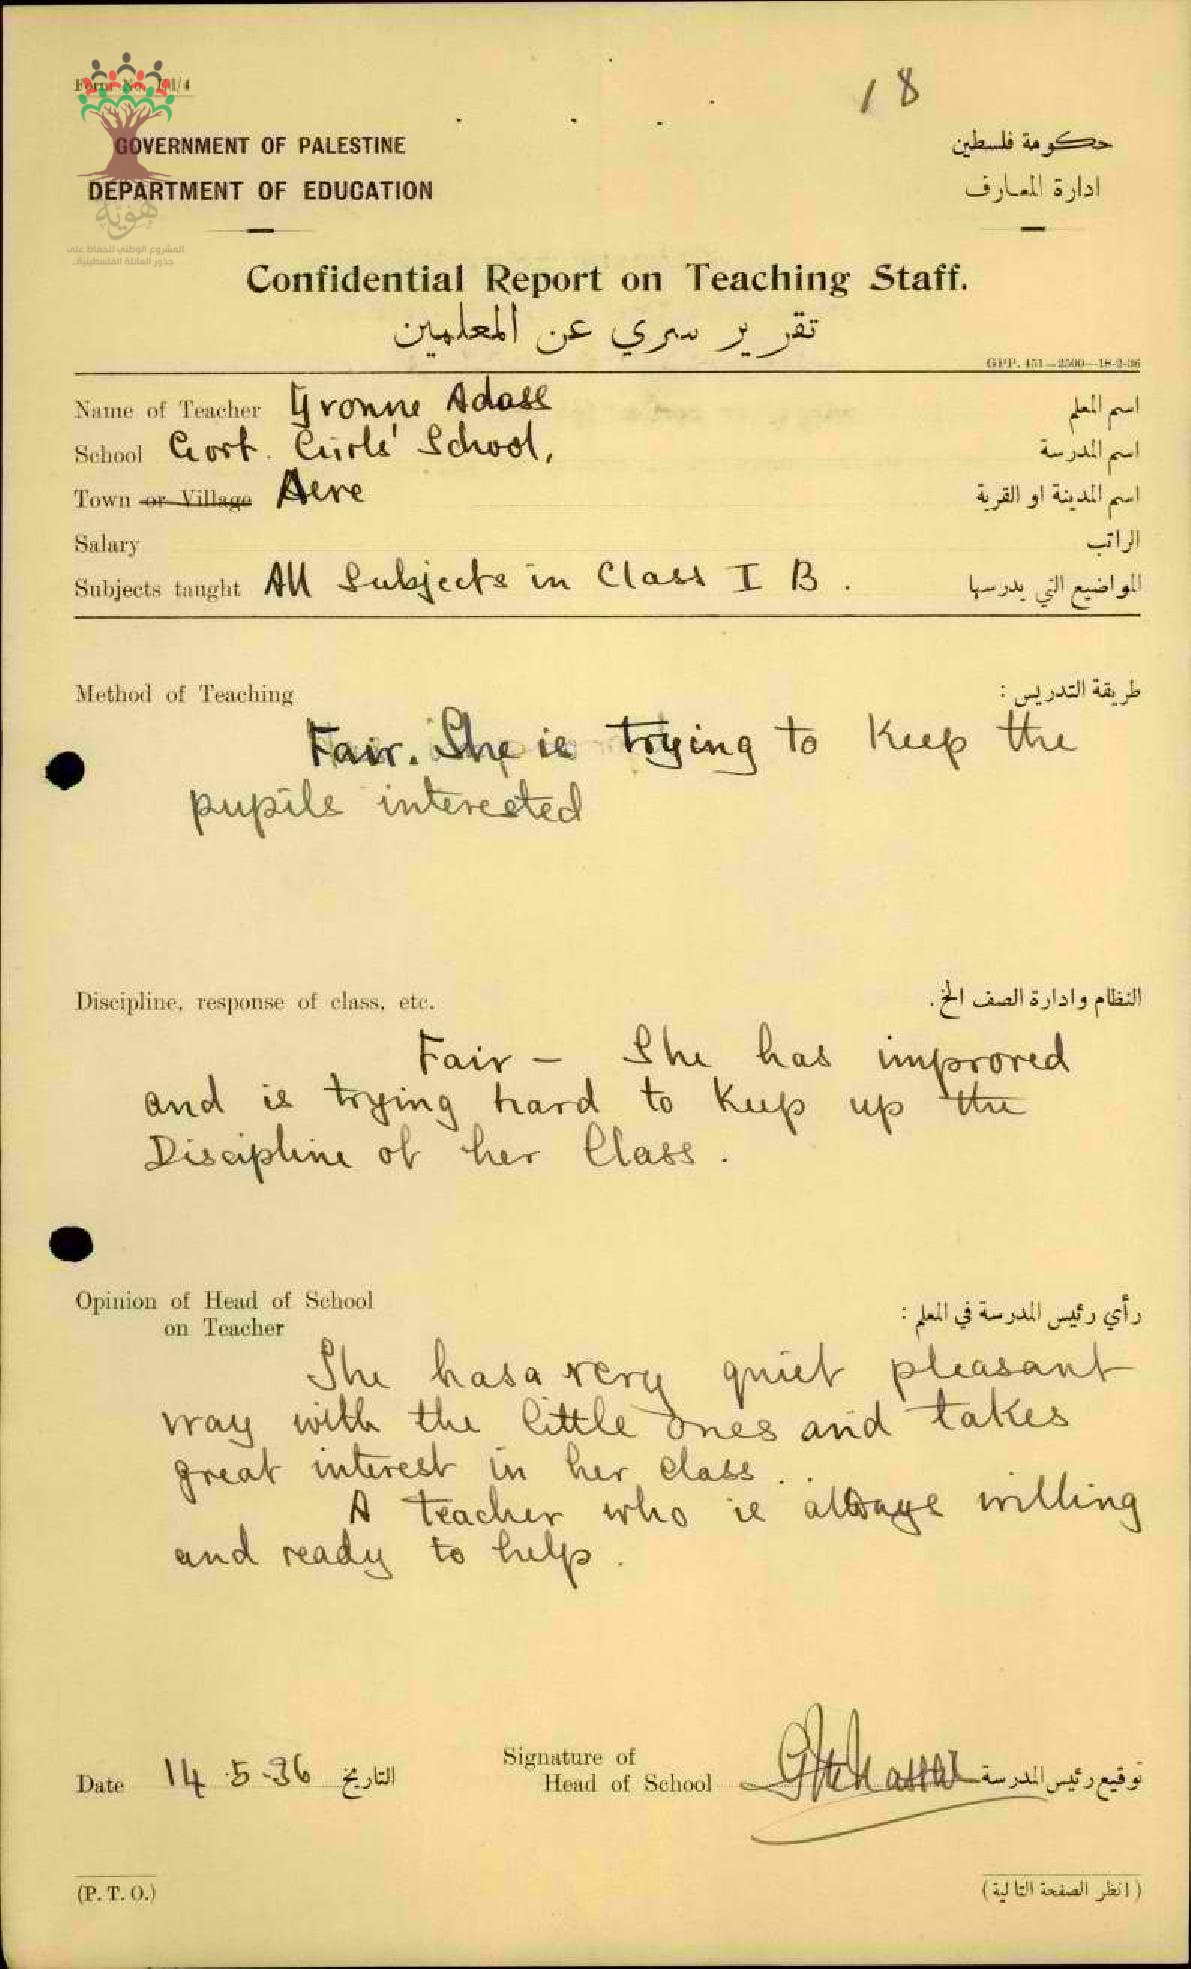 18
Form No. 101/4
GOVERNMENT OF PALESTINE
حكومة فلسطين
DEPARTMENT OF EDUCATION
ادارة المعارف
هوية
المشروع الوطني للحفاظ على
جذور العائلة الفلسطينية..
Confidential Report on Teaching Staff.
تقرير سري عن المعلمين
GPP. 451—2500—18-2-36
Name of Teacher Yvonne Adass اسم المعلم
School Govt. Girls' School, اسم المدرسة
Town or Village Acre اسم المدينة او القرية
Salary الراتب
Subjects taught All Subjects in Class I B. المواضيع التي يدرسها
Method of Teaching طريقة التدريس :
Fair. She is trying to keep the
pupils interested
Discipline, response of class, etc. النظام وادارة الصف الخ.
Fair — She has improved
and is trying hard to keep up the
Discipline of her Class.
Opinion of Head of School رأي رئيس المدرسة في المعلم :
on Teacher
She has a very quiet pleasant
way with the little ones and takes
great interest in her class.
A teacher who is always willing
and ready to help.
Signature of
Date 14.5.36 التاريخ Head of School توقيع رئيس المدرسة
(P. T. O.) (انظر الصفحة التالية)